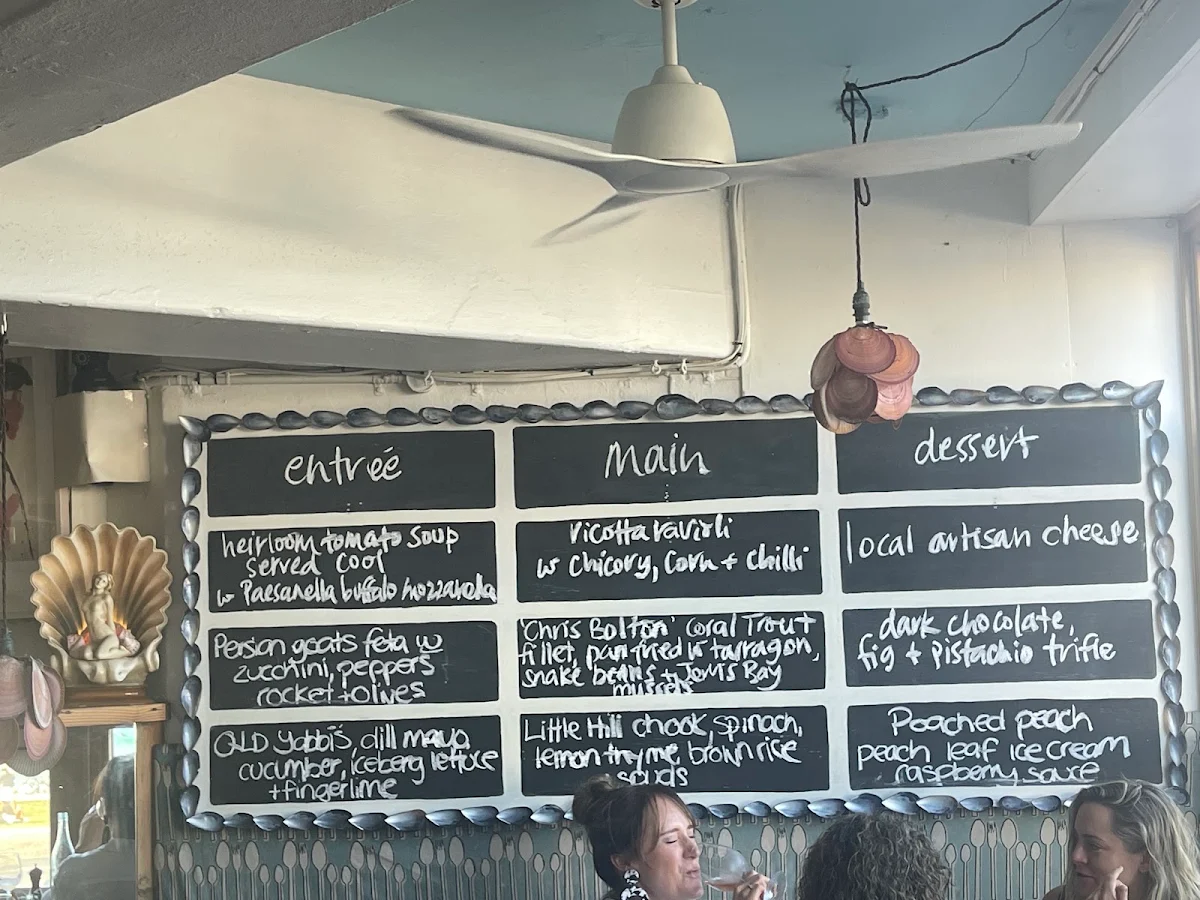 entrée
heirloom tomato soup
served cool
w Paesanella buffalo mozzarella
Persian goats feta w
zucchini, peppers
rocket + olives
QLD Yabbis, dill mayo,
cucumber, iceberg lettuce
+ fingerlime
Main
ricotta ravioli
w chicory, corn + chilli
'Chris Bolton' Coral Trout
fillet, pan fried w tarragon,
snake beans + Jervis Bay
mussels
Little Hill chook, spinach,
lemon thyme brown rice
spuds
dessert
local artisan cheese
dark chocolate,
fig + pistachio trifle
Poached peach
peach leaf ice cream
raspberry sauce